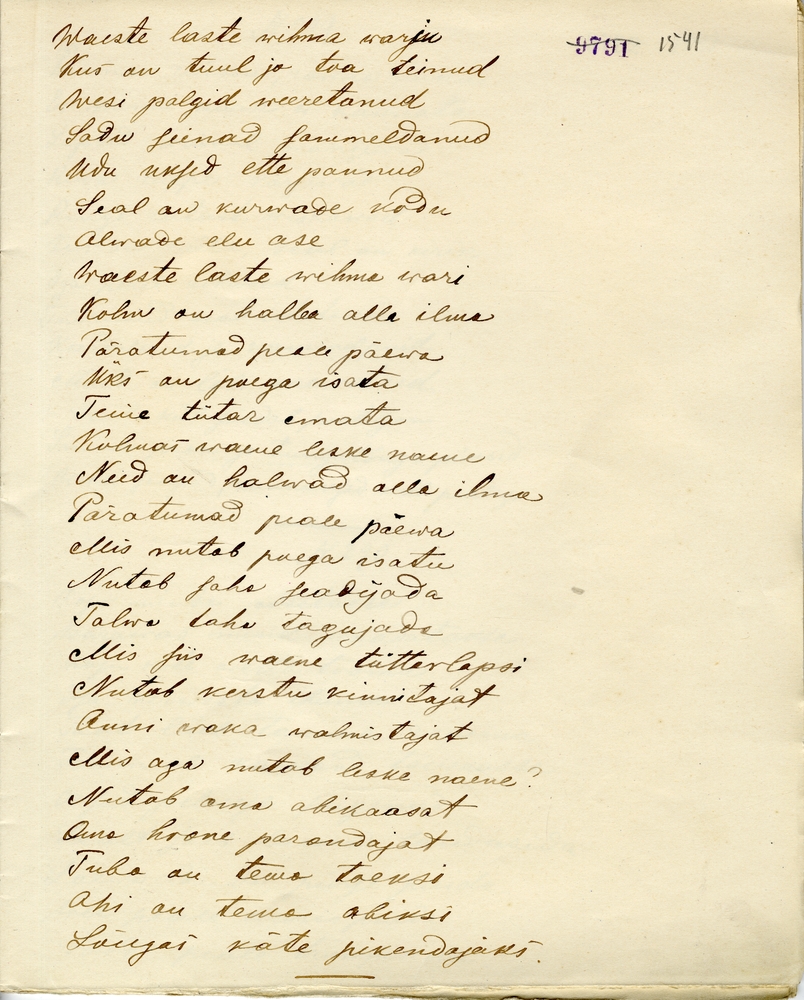 Waeste laste wihma warju
9791 1541
Kus on tuul jo toa teinud
Wesi palgid weeretanud
Sadu seinad sammeldanud
Udu uksed ette pannud
Seal on kurwade kodu
Alwade elu ase
Waeste laste wihma wari
Kolm on halba alla ilma
Päratumad peale päewa
Üks on poega isata
Teine tütar emata
Kolmas waene leske naene
Need on halwad alla ilma
Päratumad peale päewa
Mis nutab poega isatu
Nutab saha seadijada
Talwe taha tagujada
Mis siis waene tütterlapsi
Nutab kerstu kinnitajat
Anni waka walmistajat
Mis aga nutab leske naene?
Nutab oma abikaasat
Oma hoone parandajat
Tuba on tema toeksi
Ahi on tema abiksi
Lõugas käte pikendajaks.